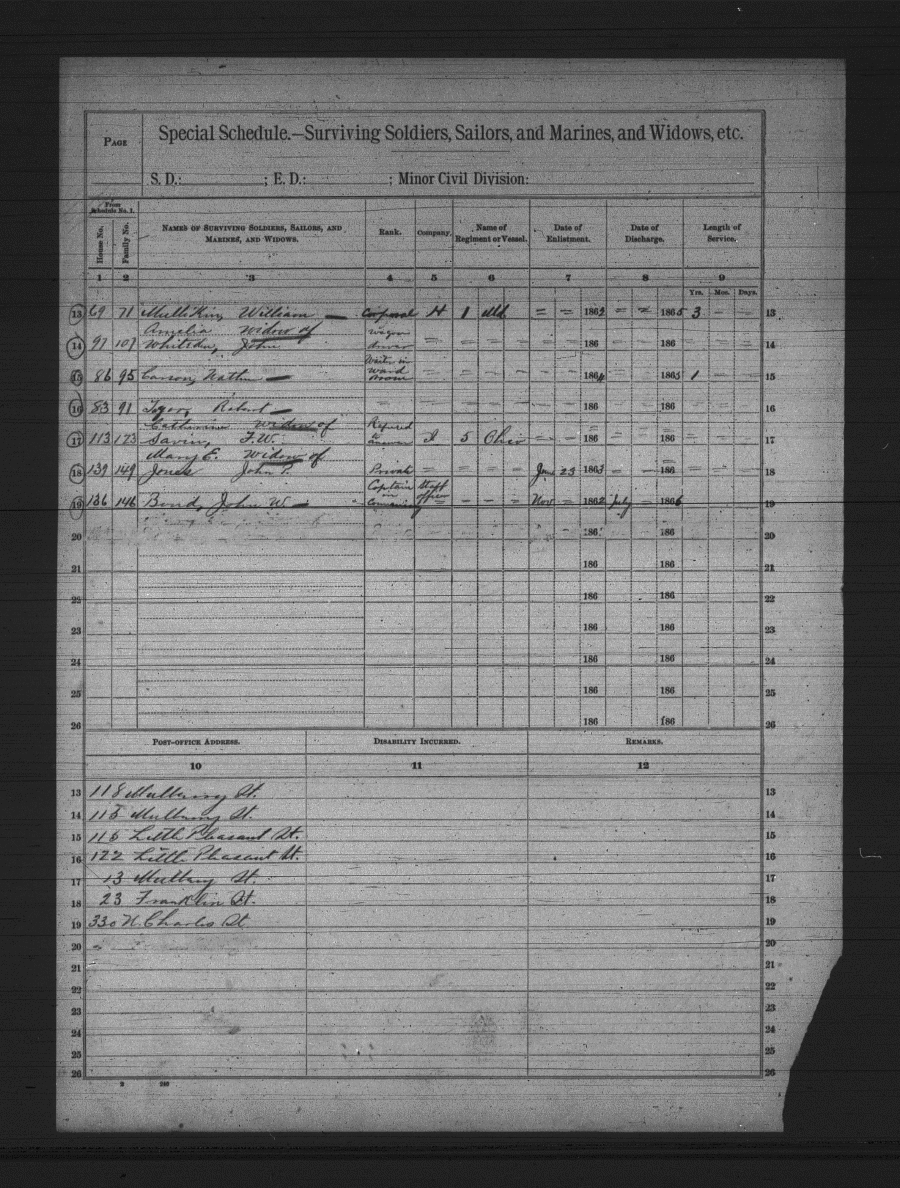 PAGE
Special Schedule.—Surviving Soldiers, Sailors, and Marines, and Widows, etc.
S. D.: ; E. D.: ; Minor Civil Division:
From Schedule No. 1.
House No. Family No. NAMES OF SURVIVING SOLDIERS, SAILORS, AND MARINES, AND WIDOWS. Rank. Company. Name of Regiment or Vessel. Date of Enlistment. Date of Discharge. Length of Service.
1 2 3 4 5 6 7 8 9
Yrs. Mos. Days.
13 69 71 Mullikin, William — Corporal H 1 Md = — 1862 — = 1865 3 — — 13
Amelia Widow of Wagon
14 97 107 John driver 186 186 14
Ward
15 86 95 Carson, — Room 1864 1865 1 15
16 83 91 Robert — 186 186 16
Catharine Widow of Refused to
17 113 123 Savin, F. W. answer I 5 Ohio — — 186 186 17
Mary E. Widow of
18 139 149 Jones John P. Private Jan 23 1863 — 186 18
Captain Staff
19 136 146 Bond, John W. — in Commissary officer Nov — 1862 July — 1866 19
20 186 186 20
21 186 186 21
22 186 186 22
23 186 186 23
24 186 186 24
25 186 186 25
26 186 186 26
POST-OFFICE ADDRESS. DISABILITY INCURRED. REMARKS.
10 11 12
13 118 Mulberry St. 13
14 115 Mulberry St. 14
15 116 Little Pleasant St. 15
16 122 Little Pleasant St. 16
17 13 Mulberry St. 17
18 23 Franklin St. 18
19 330 N. Charles St. 19
20 20
21 21
22 22
23 23
24 24
25 25
26 26